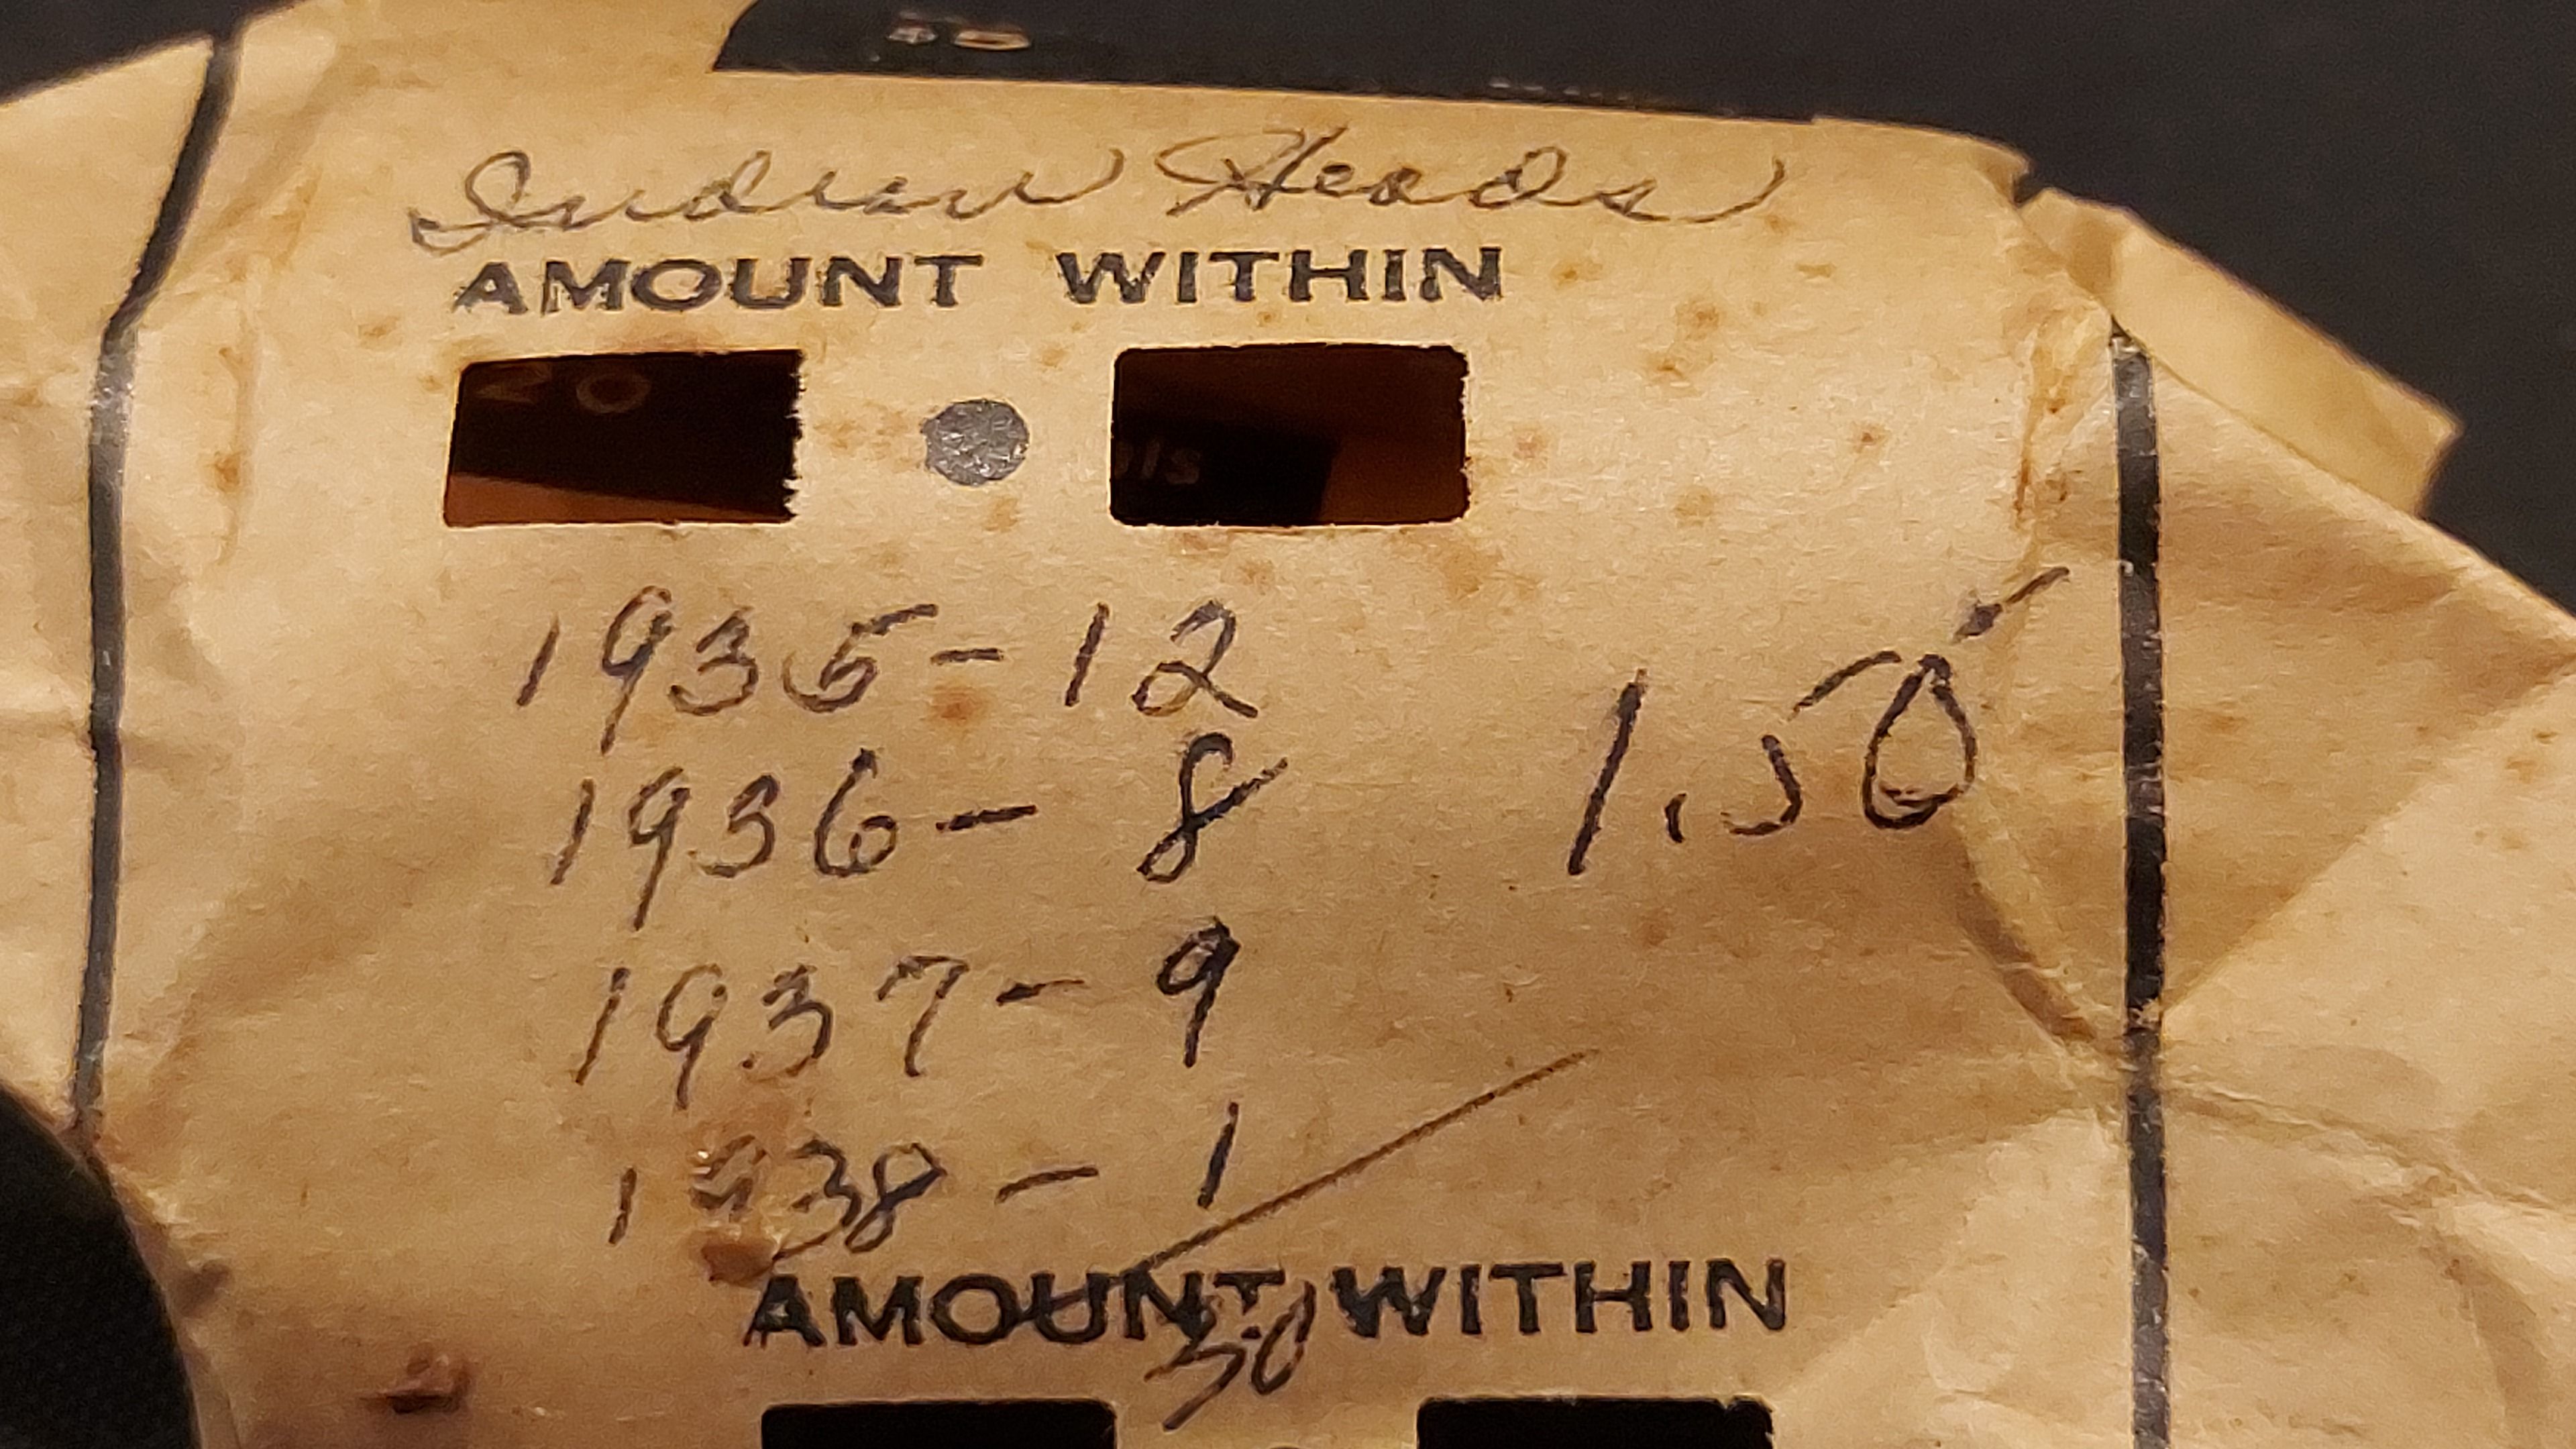 Indian Heads
AMOUNT WITHIN
20
1935-12
1936- 8
1.50
1937- 9
1938 - 1
AMOUNT WITHIN
30